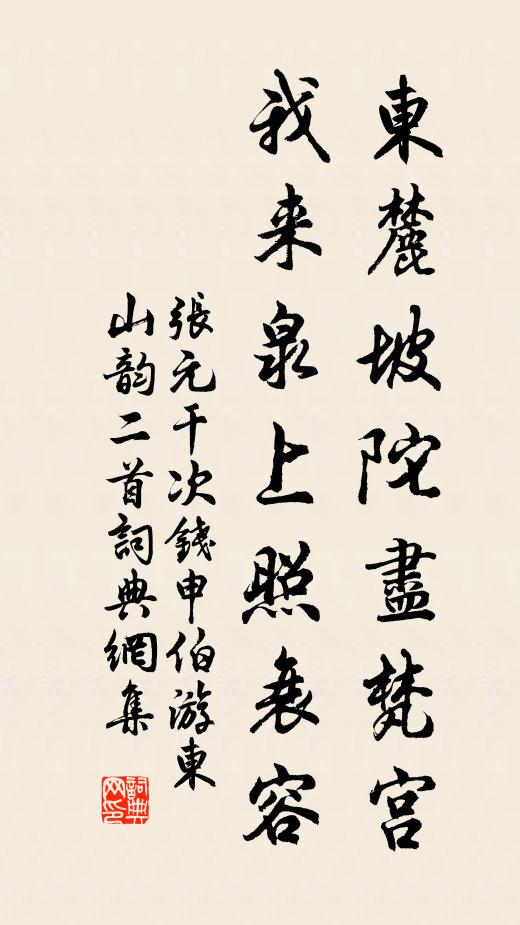 東麓坡陀盡梵宮
我来泉上照衰容
張元干次錢申伯游東
山韵二首詞典網集
詞典
网印